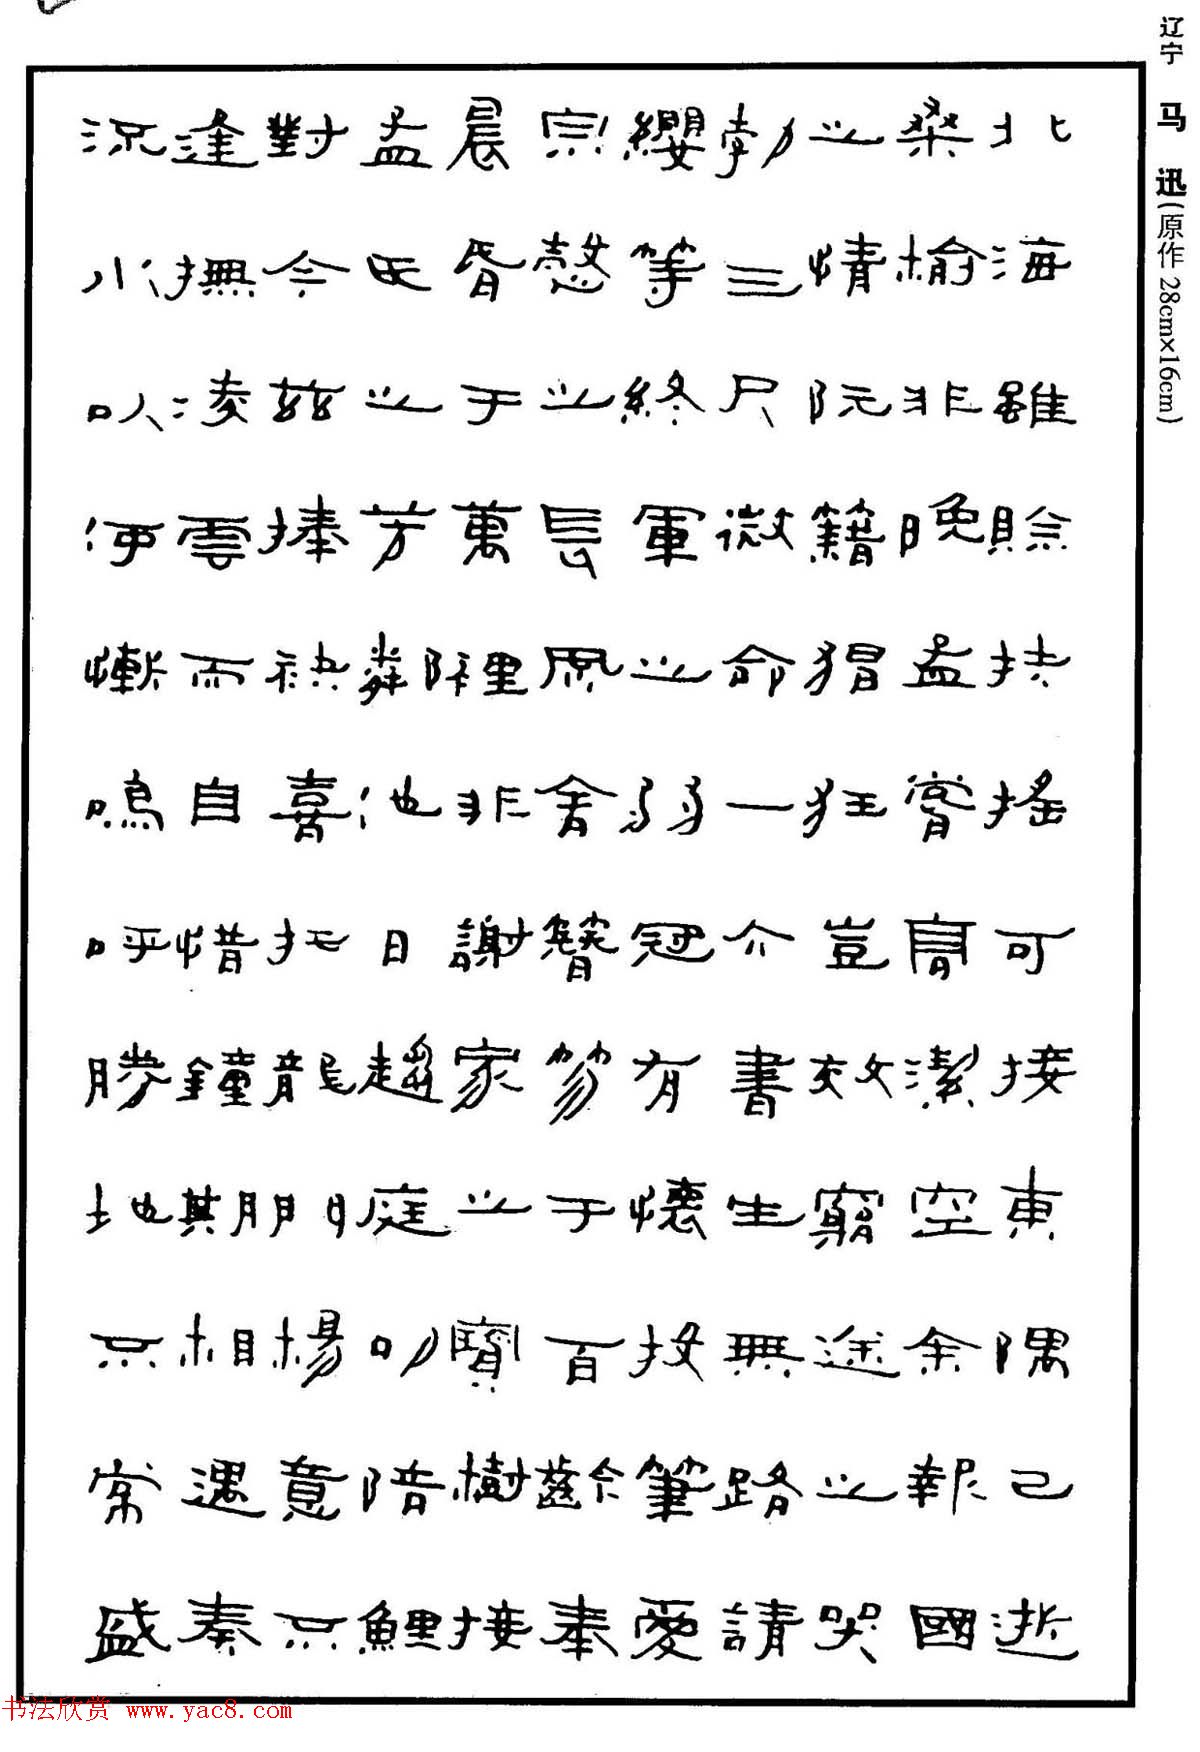 辽宁 马 迅(原作28cm×16cm)
北海雖賒扶搖可接東隅已逝
桑榆非晚孟嘗高潔空余報國
之情阮籍猖狂豈效窮途之哭
勃三尺微命一介書生無路請
纓等終軍之弱冠有懷投筆愛
宗愨之長風舍簪笏于百齡奉
晨昏于萬里非謝家之寶樹接
孟氏之芳鄰他日趨庭叨陪鯉
對今茲捧袂喜托龍門楊意不
逢撫凌雲而自惜鐘期相遇奏
流水以何慚嗚呼勝地不常盛
书法欣赏 www.yac8.com